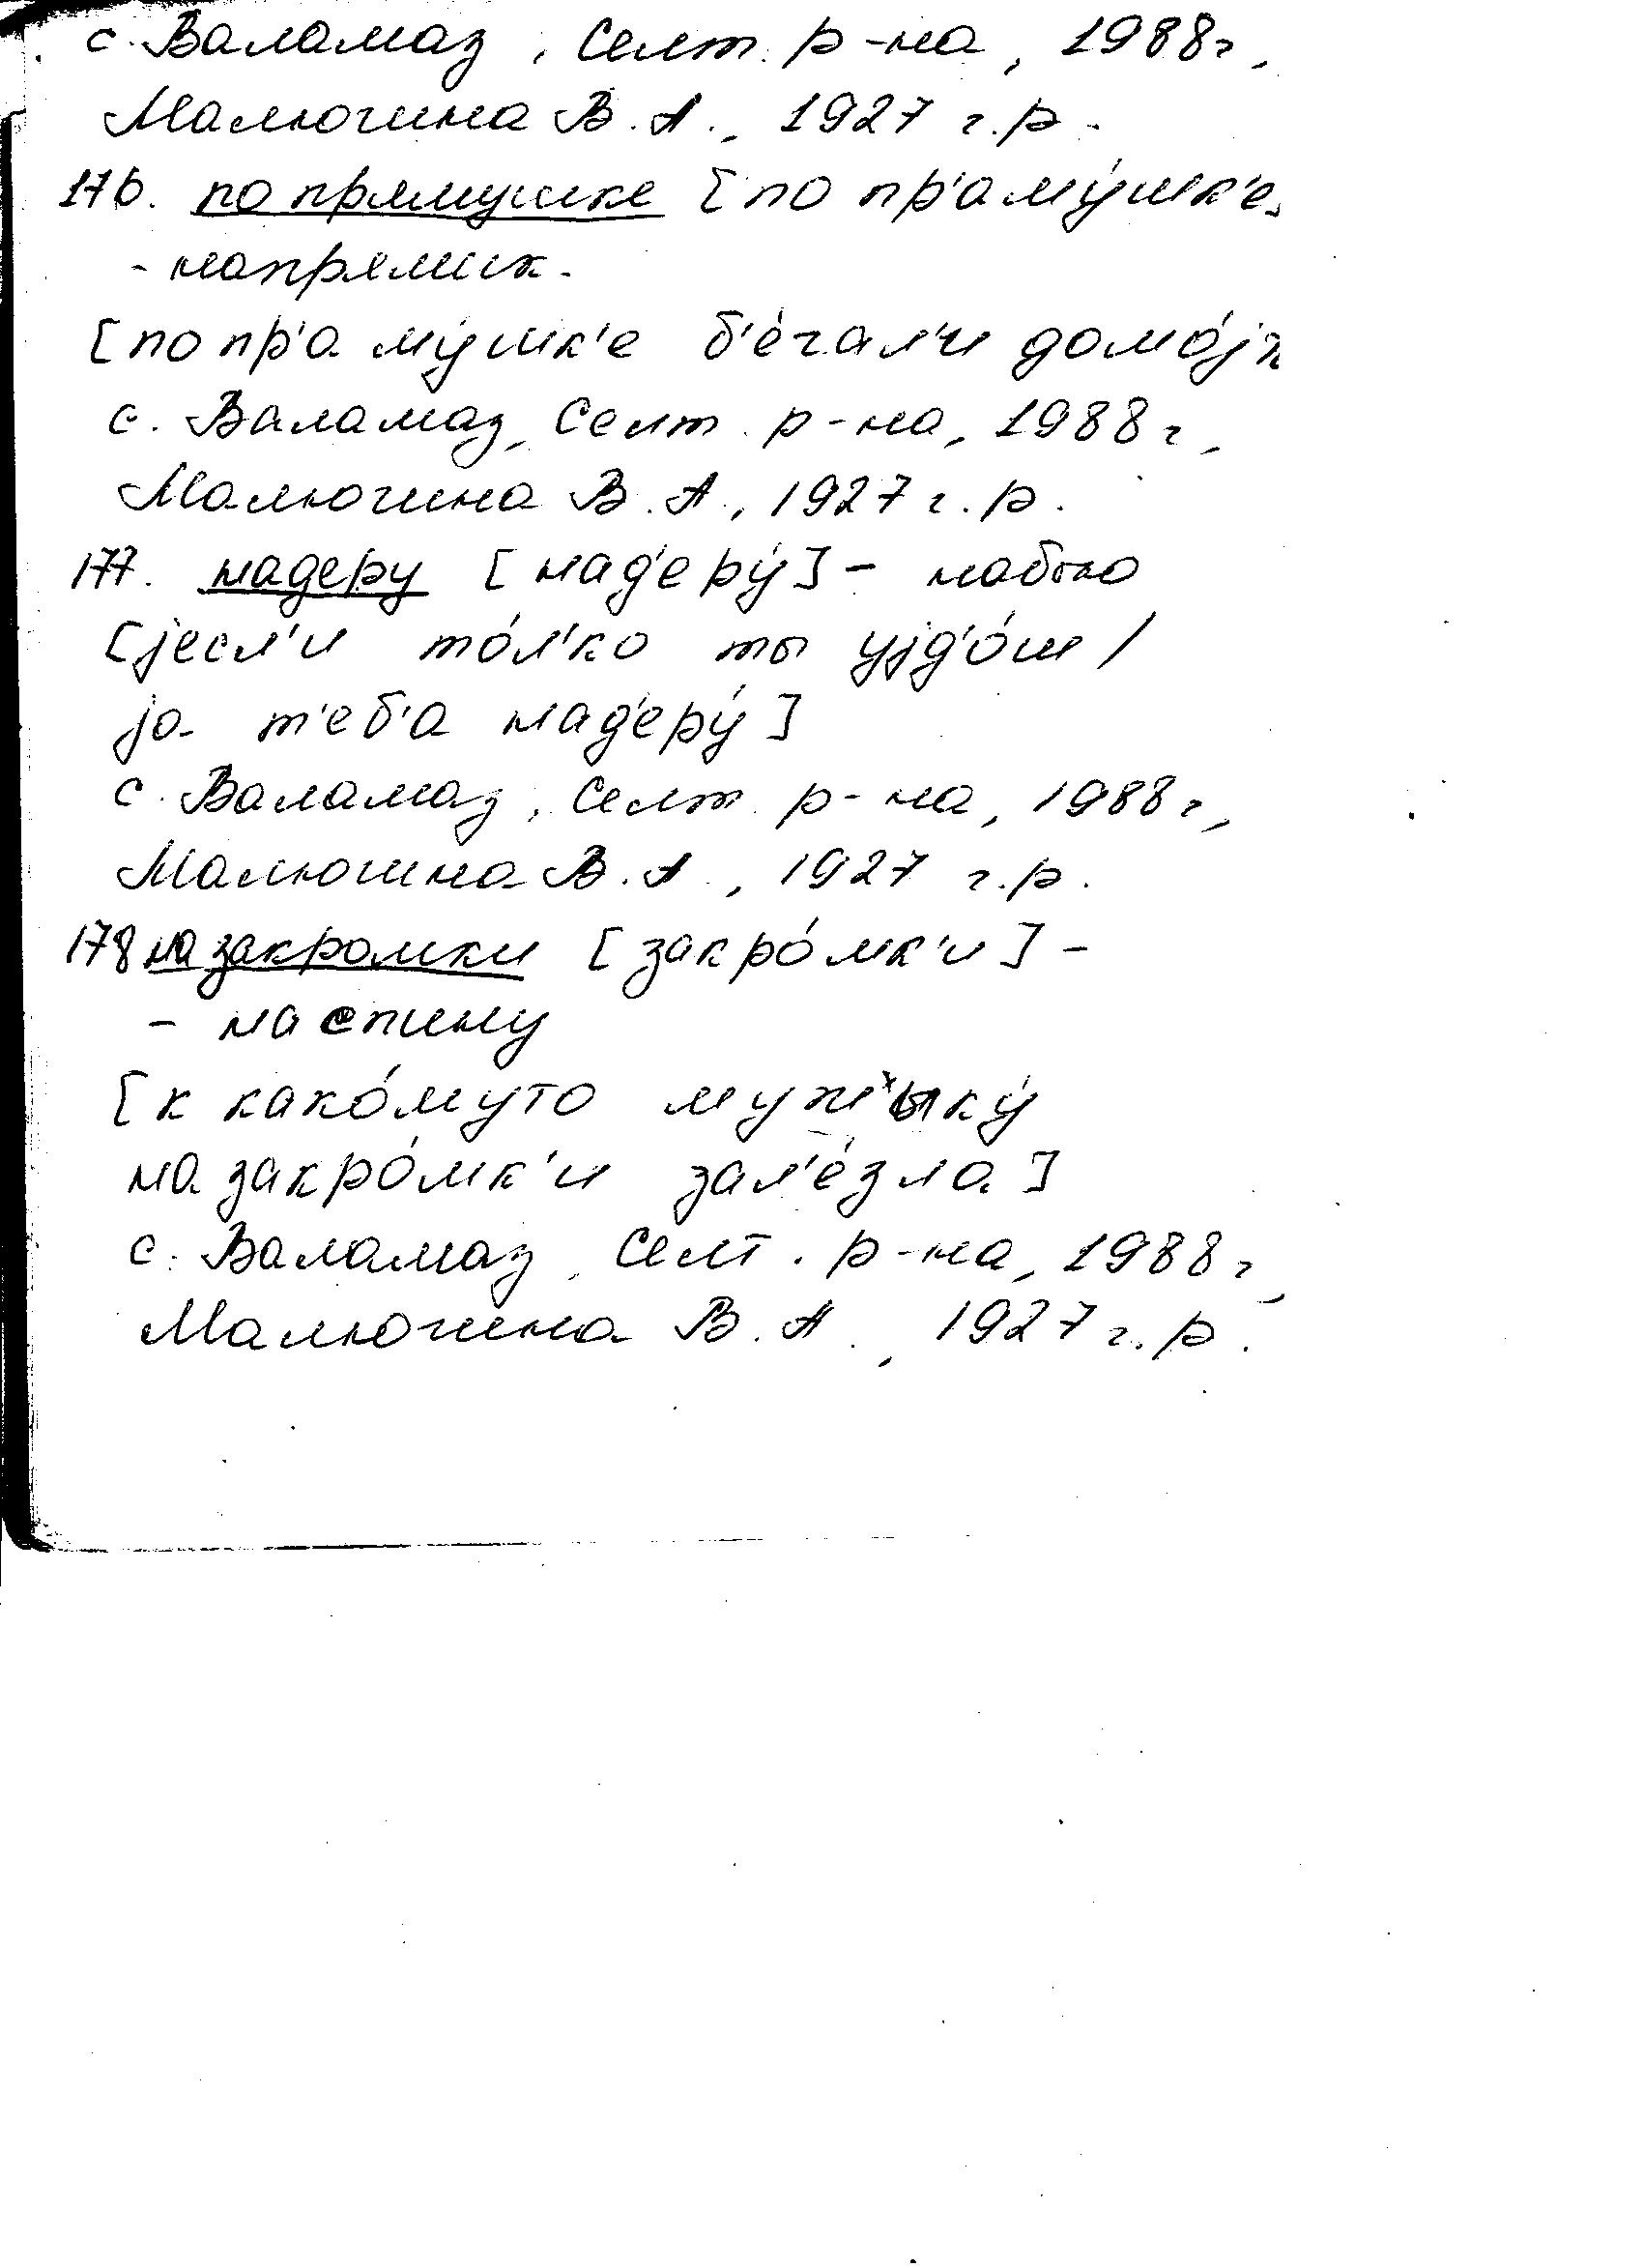 с. Валамаз, Селт. р-на, 1988г.,
Малючина В.А., 1927 г.р.
176. по прямушке [по пр'аму́шк'е]
- напрямик.
[по пр'аму́шк'е б'е́гал'и домо́j]
с. Валамаз, Селт. р-на, 1988г.,
Малючина В.А., 1927 г.р.
177. надеру [над'еру́] - набью
[jесл'и то́л'ко ты уjд'о́ш /
jа т'еб'а над'еру́]
с. Валамаз, Селт. р-на, 1988г.,
Малючина В.А., 1927 г.р.
178 на закромки [закро́мк'и] -
- на спину
[к како́муто мужыку́
на закро́мк'и зал'е́зла]
с. Валамаз, Селт. р-на, 1988г.,
Малючина В.А., 1927 г.р.